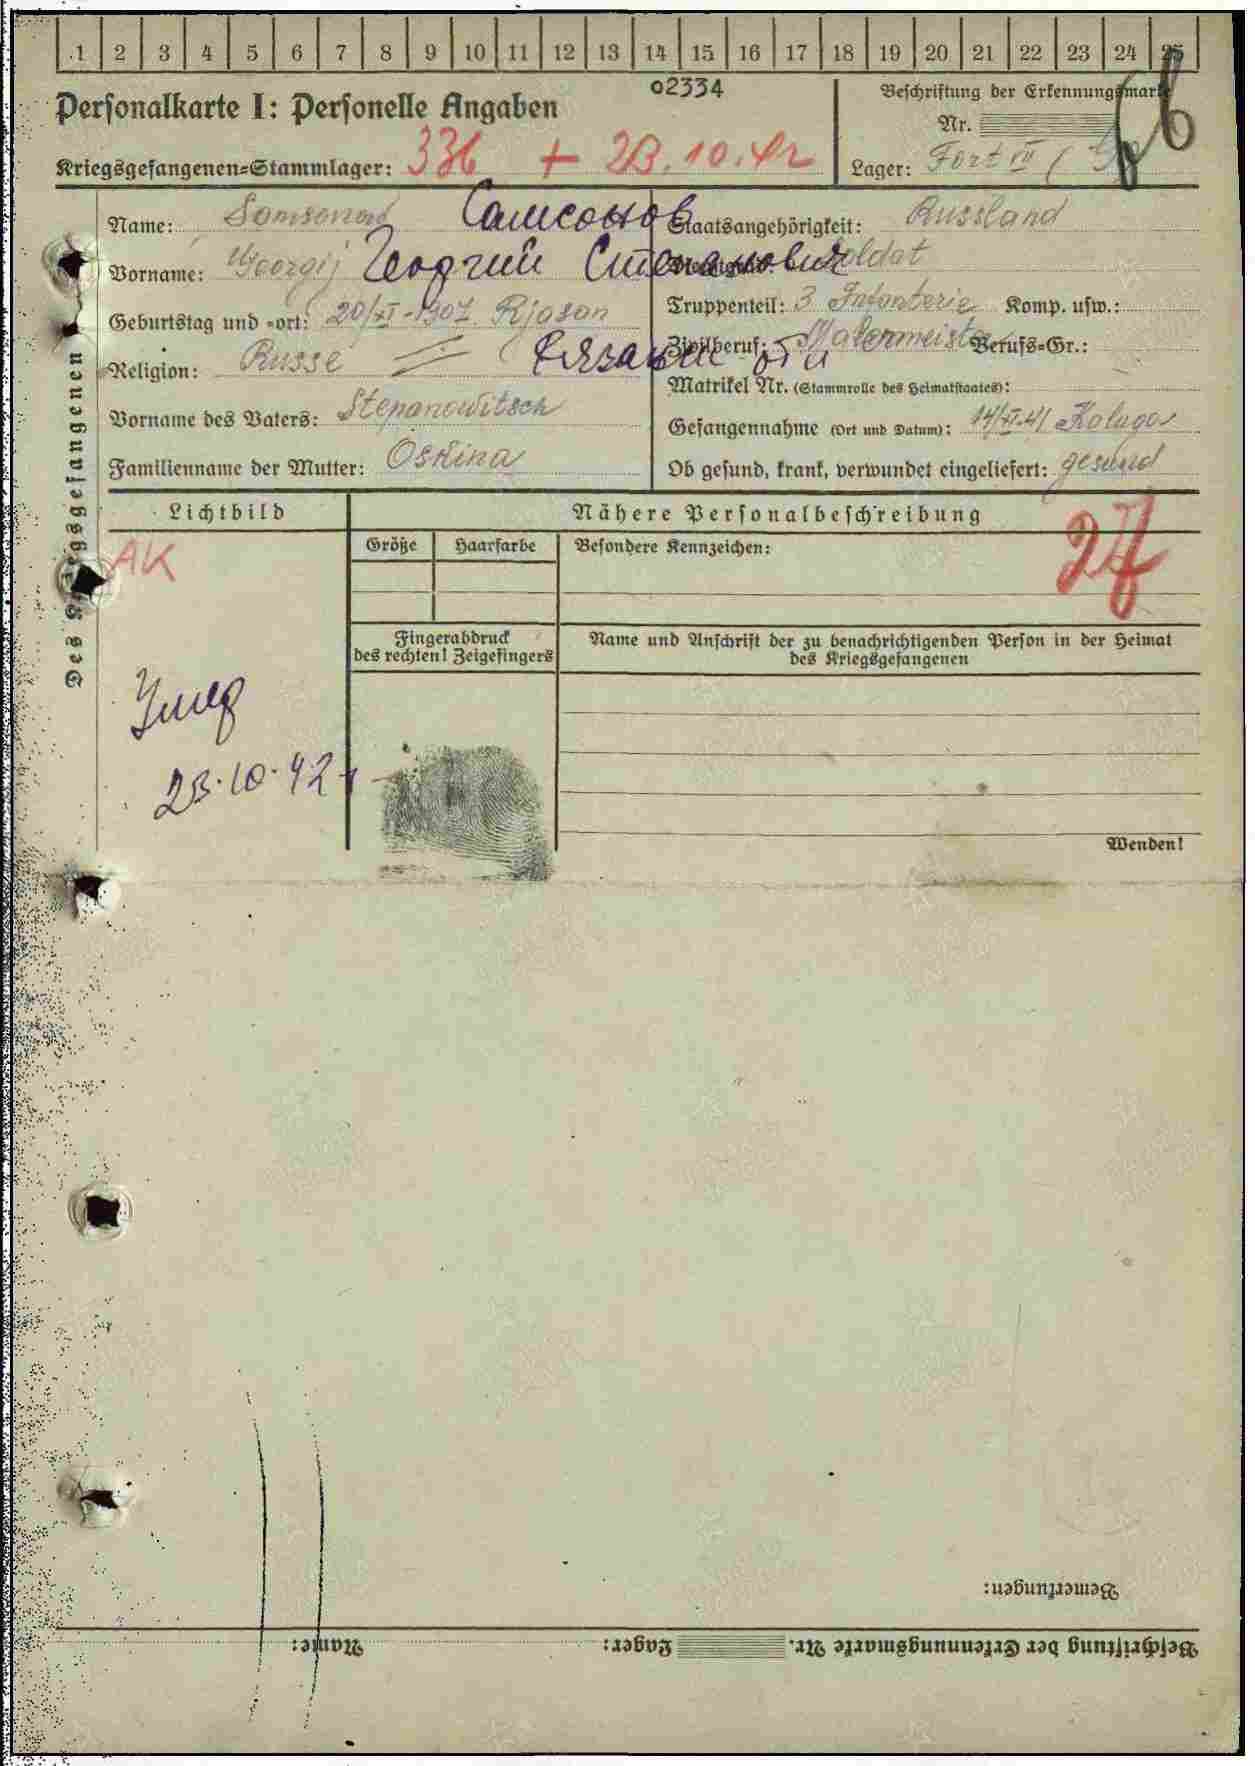 1 2 3 4 5 6 7 8 9 10 11 12 13 14 15 16 17 18 19 20 21 22 23 24 25
02334
Personalkarte I: Personelle Angaben
Kriegsgefangenen-Stammlager: 336 + 23.10.42
Beschriftung der Erkennungsmarke
Nr.
Lager: Fort VII
Des Kriegsgefangenen
Name: Samsonow Самсонов
Vorname: Georgij Георгий Степанович
Geburtstag und -ort: 20/XI-1907 Rjasan
Religion: Russe Рязань
Vorname des Vaters: Stepanowitsch
Familienname der Mutter: Oskina
Staatsangehörigkeit: Russland
Dienstgrad: Soldat
Truppenteil: 3 Infanterie Komp. usw.:
Zivilberuf: Malermeister Berufs-Gr.:
Matrikel Nr. (Stammrolle des Heimatstaates):
Gefangennahme (Ort und Datum): 14/XI.41 Kaluga
Ob gesund, krank, verwundet eingeliefert: gesund
Lichtbild
Nähere Personalbeschreibung
AK
Größe
Haarfarbe
Besondere Kennzeichen:
Fingerabdruck
des rechten! Zeigefingers
Name und Anschrift der zu benachrichtigenden Person in der Heimat
des Kriegsgefangenen
Умер
23.10.42 г
Wenden!
Bemerkungen:
Beschriftung der Erkennungsmarke Nr. Lager: Name: